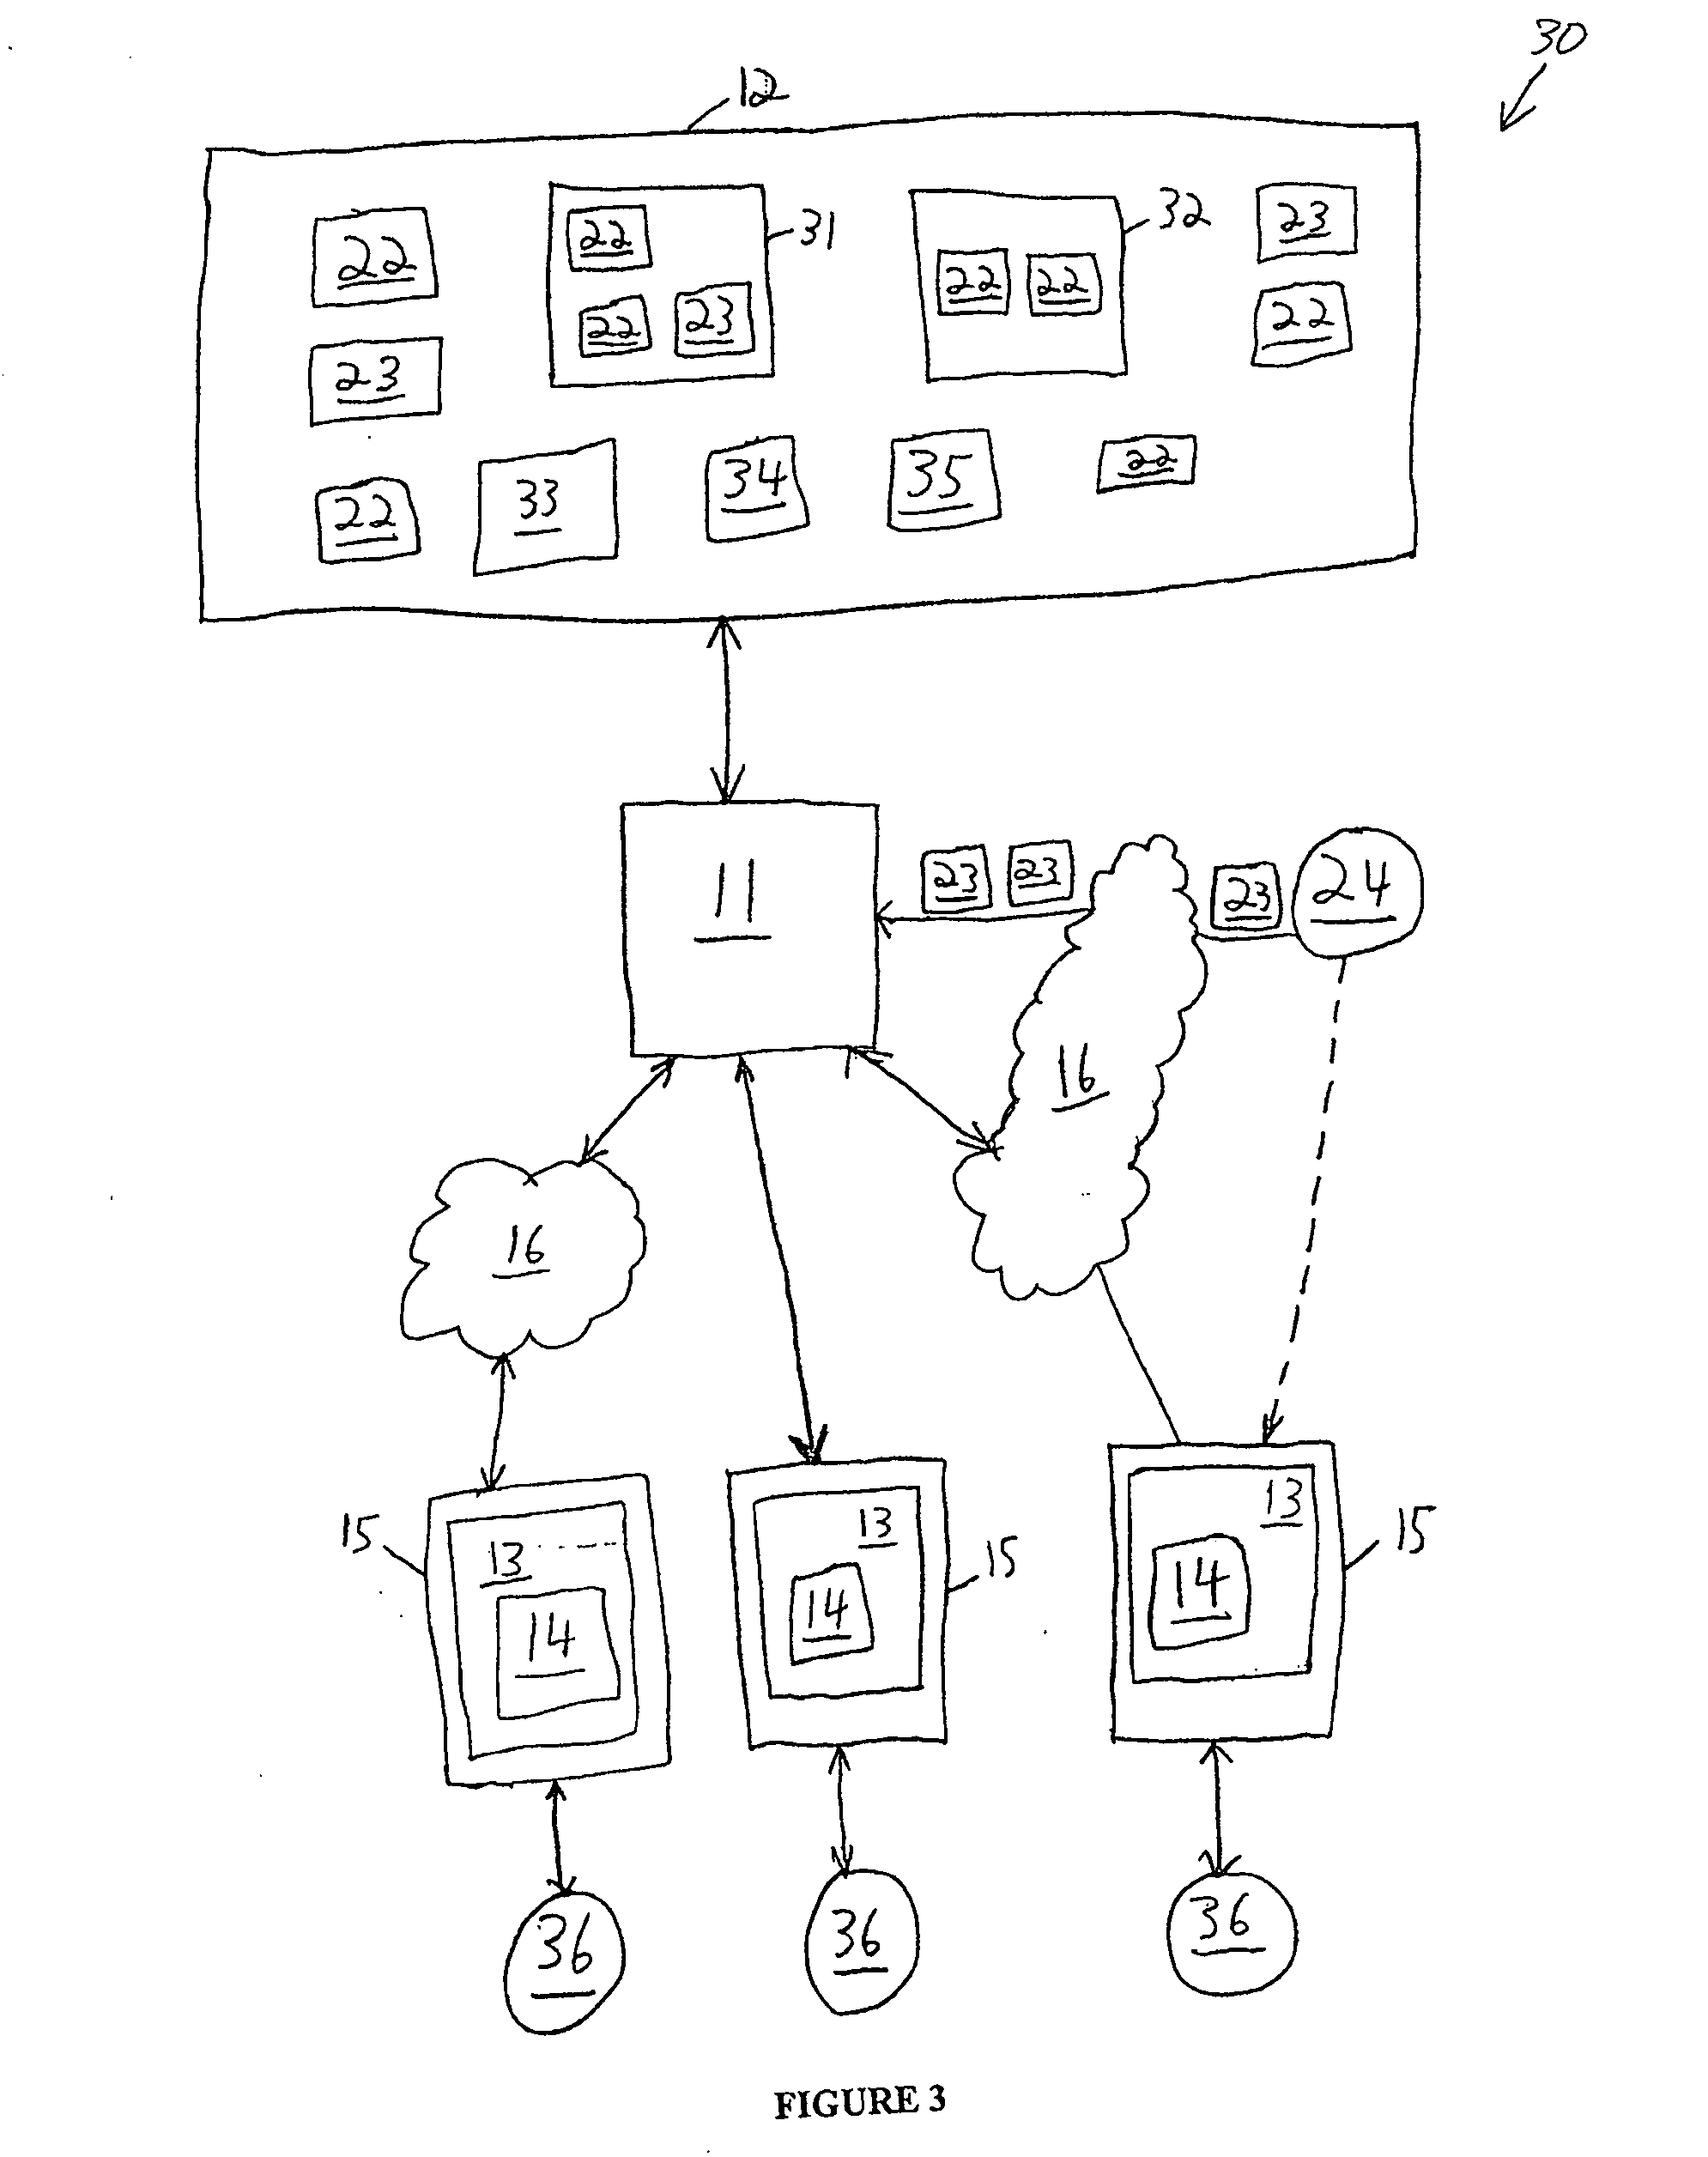 30
12
22
22
31
32
23
22
23
22
22
22
23
22
33
34
35
22
11
23
23
23
24
16
16
15
13
14
13
14
15
13
14
15
36
36
36
FIGURE 3